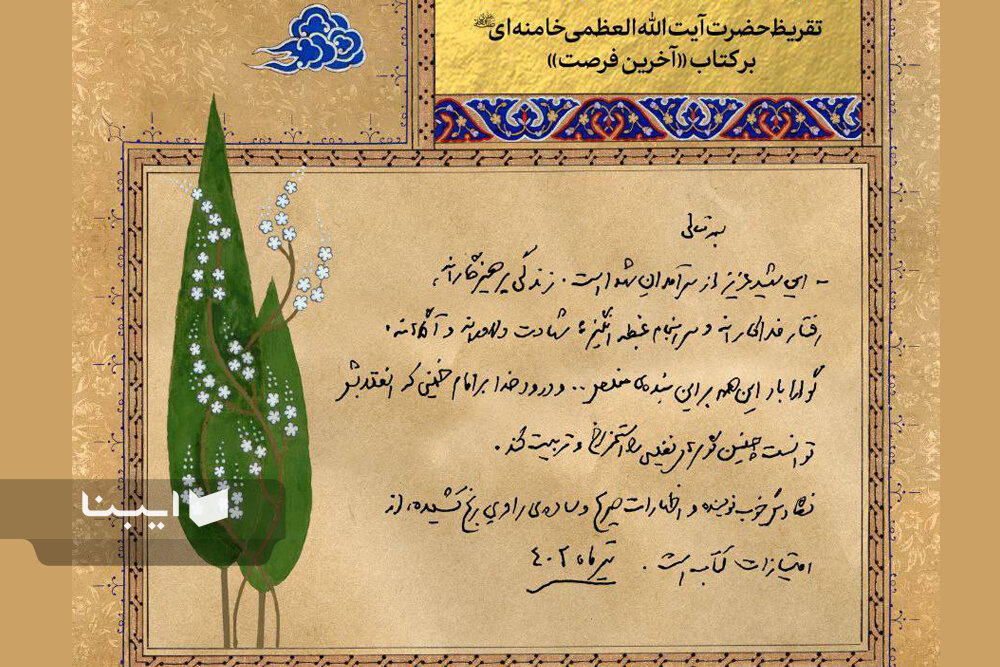 تقریظ حضرت آیت الله العظمی خامنه‌ای
بر کتاب «آخرین فرصت»
بسمه تعالی
- این شهید عزیز از سرآمدان شهدا است. زندگی پرهیزگارانه،
رفتار فداکارانه و سرانجام غبطه‌انگیز؛ شهادت دلاورانه و آگاهانه.
گوارا باد این همه بر این بنده‌ی مخلص .. و درود خدا بر امام خمینی که انقلابش
توانست چنین گوهرهای نفیسی را استخراج و تربیت کند.
نگارش خوب نویسنده و اظهارات صریح و ساده‌ی راوی رنج کشیده، از
امتیازات کتاب است. تیر ماه ۴۰۲
ایبنا